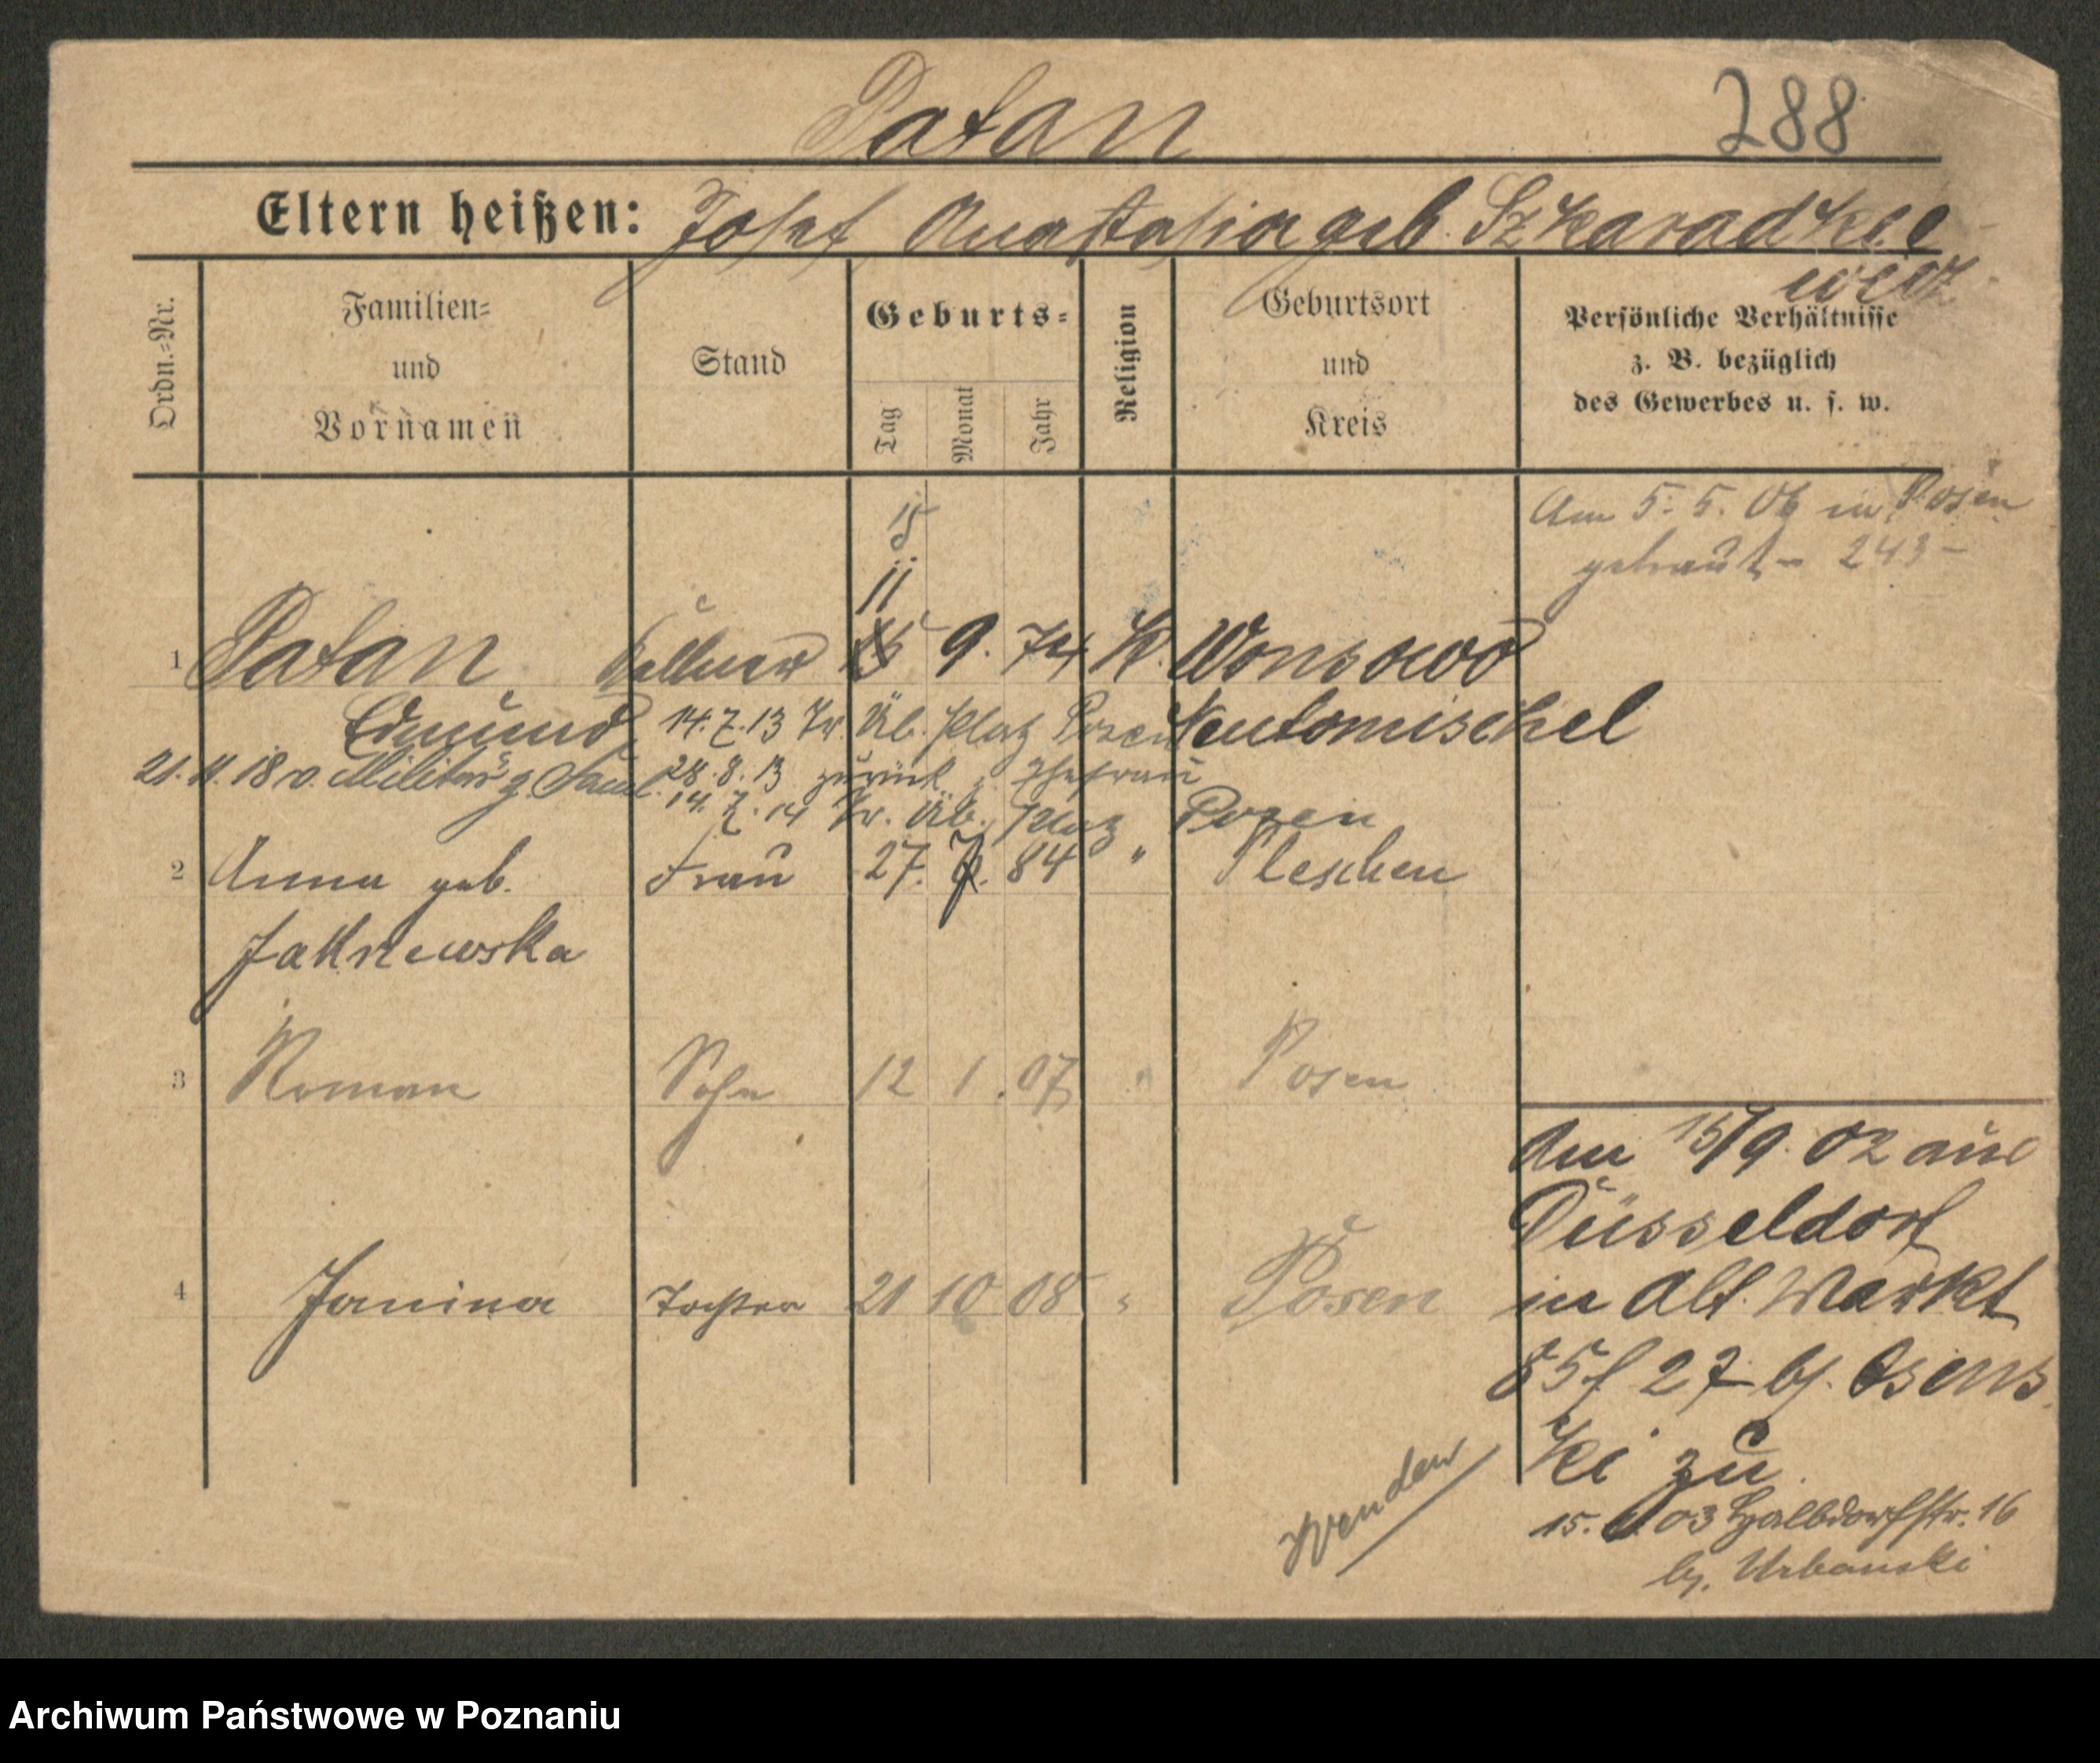 Patan 288
Eltern heißen: Josef Anastasia geb. Szkaradkie
wicz
Ordn.=Nr.
Familien=
und
Vornamen
Stand
Geburts=
Tag
Monat
Jahr
Religion
Geburtsort
und
Kreis
Persönliche Verhältnisse
z. B. bezüglich
des Gewerbes u. s. w.
Am 5. 5. 06 in Posen
getraut - 243 -
15
11
1 Patan Kellner 9. 74 K. Wonsowo
Edmund 14. 7. 13 Tr. Üb. Platz Posen Neutomischel
21. 11. 18 v. Militär z. Famil. 28. 8. 13 zurück z. Ehefrau
14. 7. 14 Tr. Üb. Platz Posen
2 Anna geb. Frau 27. 7. 84 " Pleschen
Jakniewska
3 Roman Sohn 12 1. 07 " Posen
Am 15/9. 02 aus
Düsseldorf
4 Janina Tochter 21 10 08 " Posen in Alt. Markt
85 f 27 bj. Osens
ki zu
Wenden
15. 03 Halbdorfstr. 16
bj. Urbanski
Archiwum Państwowe w Poznaniu